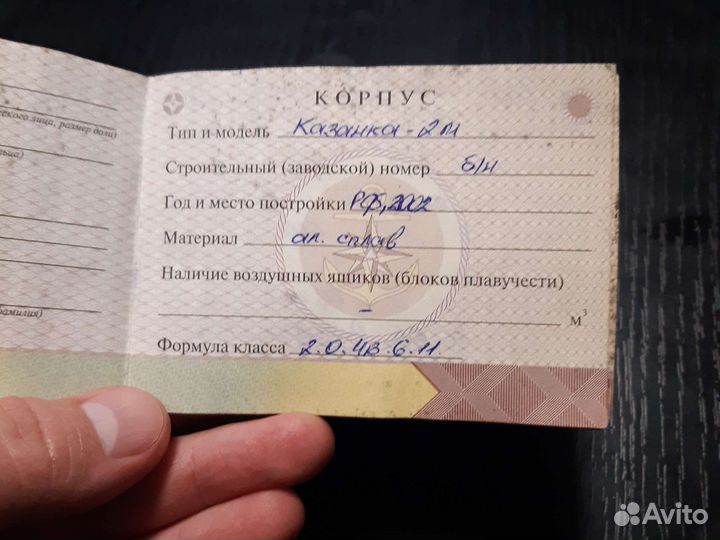 КОРПУС
ского лица, размер доли)
Тип и модель Казанка-2м
Строительный (заводской) номер б/н
Год и место постройки РФ, 2002
Материал ал. сплав
Наличие воздушных ящиков (блоков плавучести)
– м³
фамилия)
Формула класса 2.0.4В.6.11
Avito